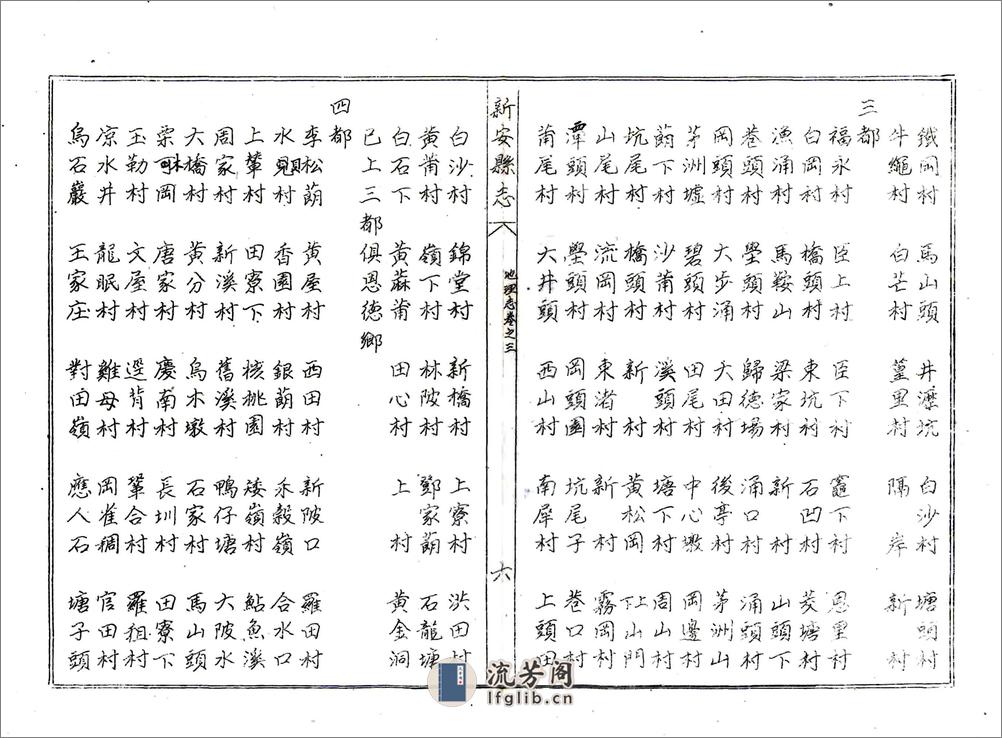 鐵岡村 馬山頭 井瀝坑 白沙村 塘頭村
牛繩村 白芒村 篁里村 隔岸 新村
三都
福永村 臣上村 臣下村 竈下村 恩里村
白岡村 橋頭村 東坑村 石凹村 茭塘村
漁涌村 馬鞍山 梁家村 新村 山頭下
巷頭村 壆頭村 歸德場 涌口村 涌頭村
岡頭村 大步涌 大田村 後亭村 茅洲山
茅洲墟 碧頭村 田尾村 中心墩 岡邊村
下村 沙莆村 溪頭村 塘下村 周山村
坑尾村 橋頭村 新村 黃松岡 上下山門
山尾村 流岡村 東渚村 新村 霧岡村
潭頭村 壆頭村 岡頭圍 坑尾子 巷口村
莆尾村 大井頭 西山村 南犀村 上頭田
新安縣志
地理志卷之三
六
白沙村 錦堂村 新橋村 上寮村 洪田村
黃莆村 嶺下村 林陂村 鄧家萠 石龍塘
白石下 黃蔴莆 田心村 上村 黃金洞
已上三都俱恩德鄉
四都
李松萠 黃屋村 西田村 新陂口 羅田村
水見村 香園村 銀萠村 禾穀嶺 合水口
上輋村 田寮下 核桃園 矮嶺村 鮎魚溪
周家村 新溪村 舊溪村 鴨仔塘 大陂水
大橋村 黃分村 烏木墩 石家村 馬山頭
栗岡 唐家村 慶南村 長圳村 田寮下
玉勒村 文屋村 逕背村 輋合村 羅租村
凉水井 龍眠村 雞母村 岡雀稠 官田村
烏石巖 王家庄 對田嶺 應人石 塘子頭
流芳阁
lfglib.cn